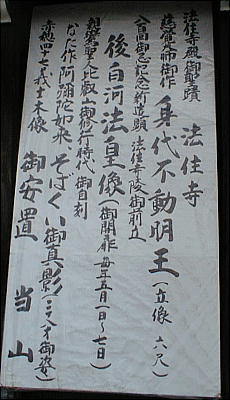 法住寺殿御聖蹟 法住寺
慈覚大師御作 身代不動明王(立像六尺)
八百回御忌記念新造顕 法住寺陵御前立
後白河法皇像(御開扉 毎年五月一日～七日)
親鸞聖人比叡山御修行時代 御自刻
なた作阿弥陀如来 そばくい御真影(二十八才御姿)
赤穂四十七義士木像 御安置 当山